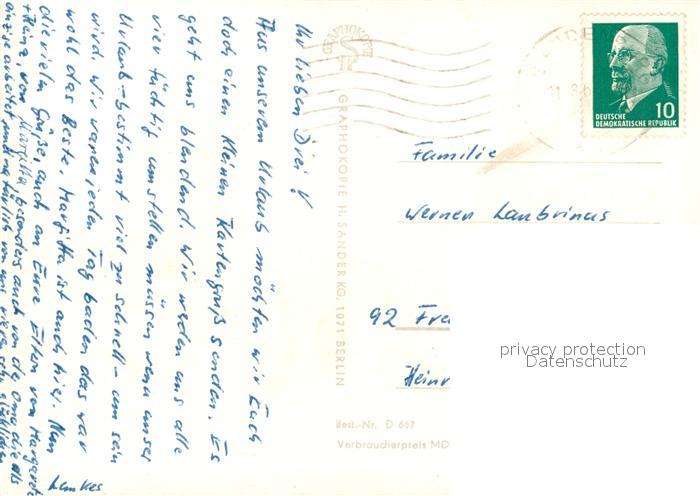 Ihr lieben Drei!
Aus unserem Urlaub möchten wir Euch
doch einen kleinen Kartengruß senden. Es
geht uns blendend. Wir werden uns alle
vier tüchtig umstellen müssen wenn unser
Urlaub - bestimmt viel zu schnell - um sein
wird. Wir waren jeden Tag baden das war
wohl das Beste. Margitta ist auch hier. Nun
die vielen Grüße, auch an Eure Eltern von Margarete
+ Heinz, von Margitta, besonders auch von der Oma die als
arbeitet und natürlich von uns
Lemkes
GRAPHOKOPIE
GRAPHOKOPIE H. SANDER KG, 1071 BERLIN
Best.-Nr. D 667
Verbraucherpreis MD
10
DEUTSCHE
DEMOKRATISCHE REPUBLIK
Familie
Werner Laubrinus
92 Fre
Heinr
privacy protection
Datenschutz